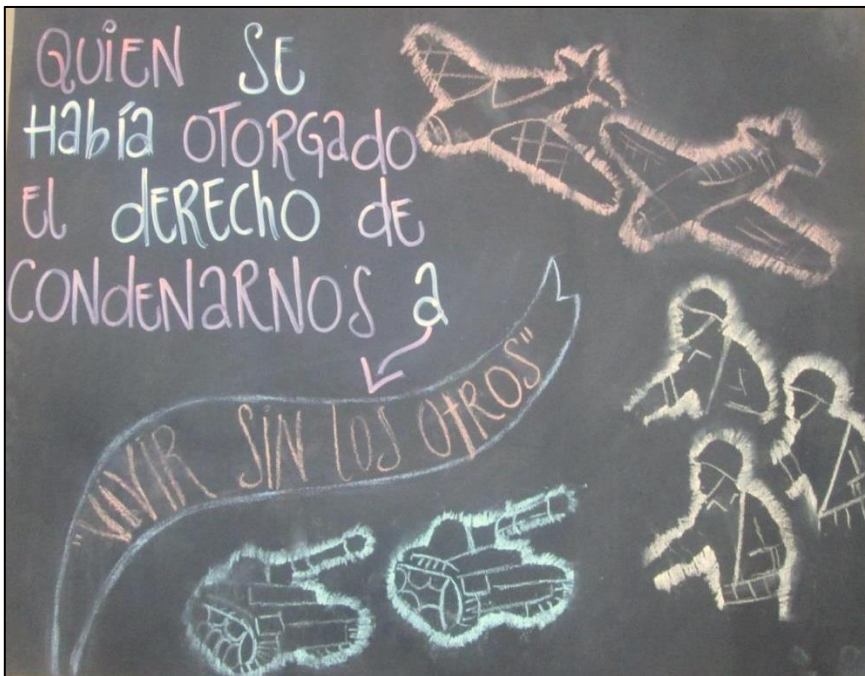 QUIEN SE
Había OTORGado
El dERECho dE
CONdENaRNOS a
"VIVIR SIN los OtROS"